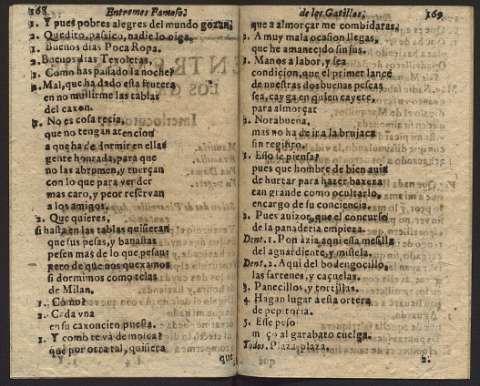 168 Entremes Famoso,
2. Y pues pobres alegres del mundo gozan,
2. Quedito, pasico, nadie lo oiga,
1. Buenos dias Poca Ropa.
2. Buenos dias Texoletas,
1. Como has passado la noche?
2. Mal, que ha dado esta frutera
en no mullirme las tablas
del caxon.
1. No es cosa recia,
que no tengan atencion
a que ha de dormir en ellas
gente honrada, para que
no las abrumen, y tuerçan
con lo que para vender
mas caro, y peor reservan
a los amigos.
2. Que quieres,
si hasta en las tablas quisieran
que sus pesas, y banastas
pesen mas de lo que pesan:
pero de que nos quexamos
si dormimos como telas
de Milan.
1. Como?
2. Cada una
en su caxoncito puesta.
1. Y como te va de moscas?
que por otra tal, quisiera
que
de los Gatillos. 169
que a almorçar me combidaras.
2. A muy mala ocasion llegas,
que he amanecido sin sus.
1. Manos a labor, y sea
condicion, que el primer lance
de nuestras dos buenas pescas,
sea, cayga en quien cayere,
para almorçar
2. Norabuena,
mas no ha de ir a la bruxaca
sin registro.
1. Esso se piensa?
pues que hombre de bien avia
de hurtar para hacer baxeza
tan grande como ocultarlo,
en cargo de su conciencia.
2. Pues avizor, que el concurso
de la panaderia empieza.
Dent. 1. Pon àzia aqui essa mesilla
del aguardiente, y mistela.
Dent. 2. Aqui del bodegoncillo,
las sartenes, y caçuelas.
3. Panecillos, y tortillas.
4. Hagan lugar a esta ortera
de pepitoria.
5. Esse peso
al garabato cuelga.
Todos. Plaza, plaza.
2.